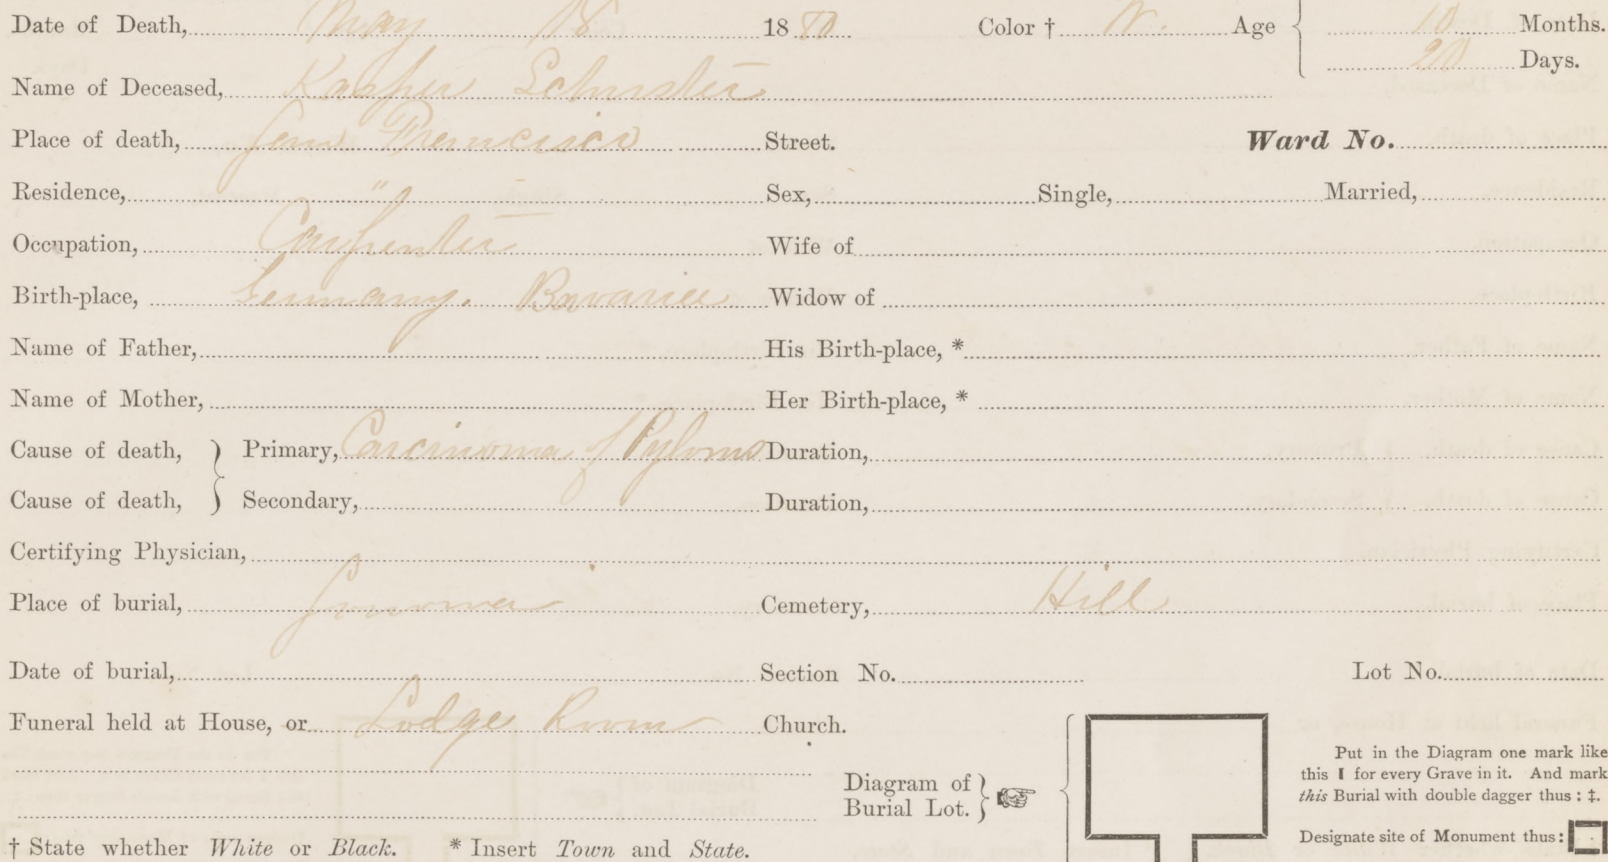 Date of Death, May 18 1880 Color † W. Age 10 Months.
20 Days.
Name of Deceased, Kasper Schuster
Place of death, San Francisco Street. Ward No.
Residence, " Sex, Single, Married,
Occupation, Carpenter Wife of
Birth-place, Germany. Bavaria Widow of
Name of Father, His Birth-place, *
Name of Mother, Her Birth-place, *
Cause of death, } Primary, Carcinoma of Pylorus Duration,
Cause of death, } Secondary, Duration,
Certifying Physician,
Place of burial, Sonoma Cemetery, Hill
Date of burial, Section No. Lot No.
Funeral held at House, or Lodge Room Church.
Diagram of
Burial Lot. }
Put in the Diagram one mark like
this I for every Grave in it. And mark
this Burial with double dagger thus : ‡.
Designate site of Monument thus:
† State whether White or Black. * Insert Town and State.